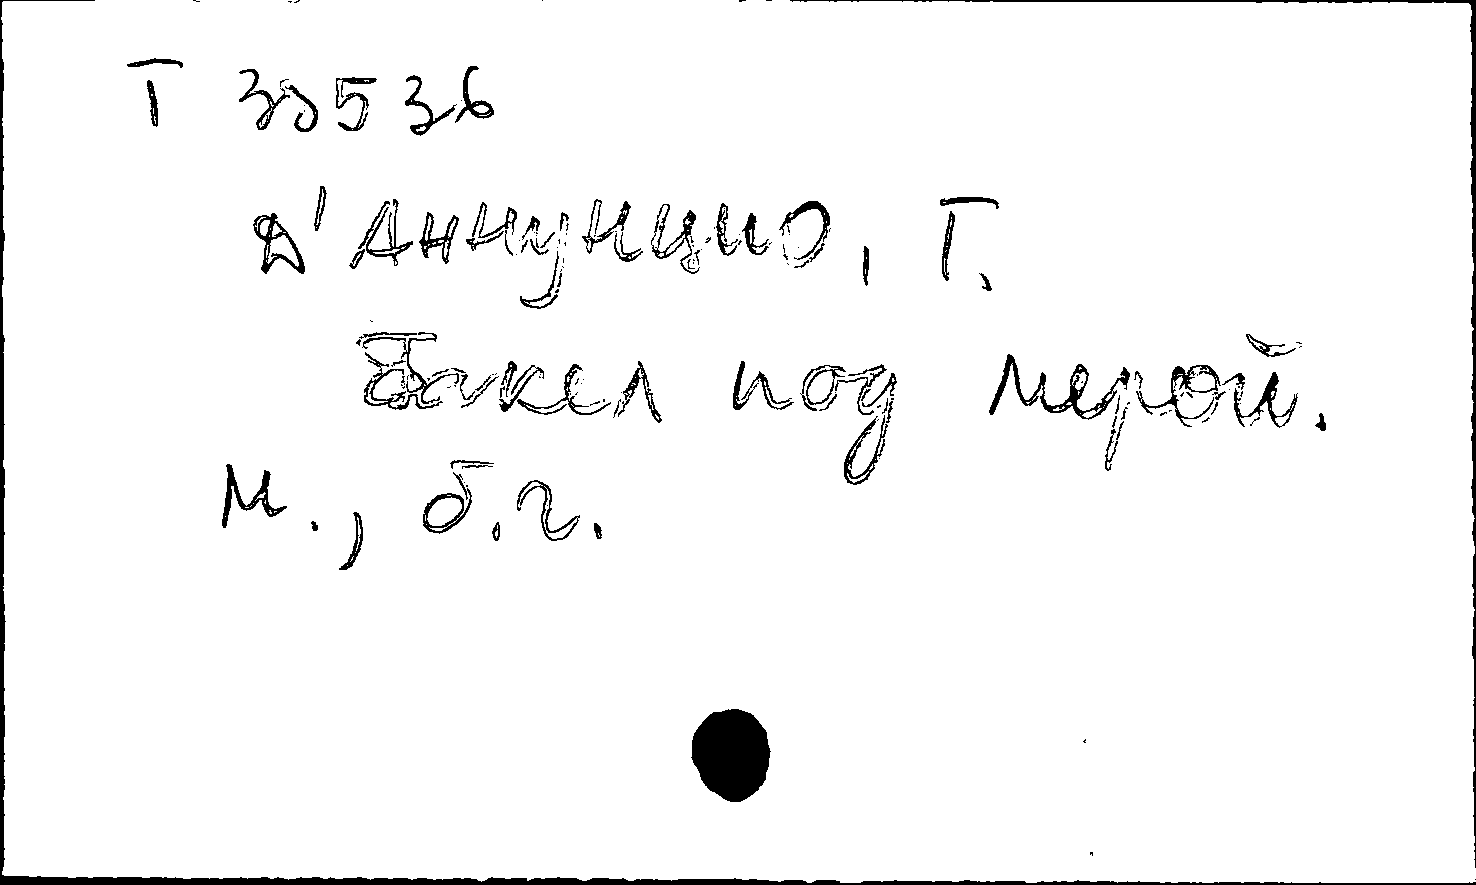 Т 33536
Д'Аннунцио, Г.
Факел под мерой.
М., б.г.